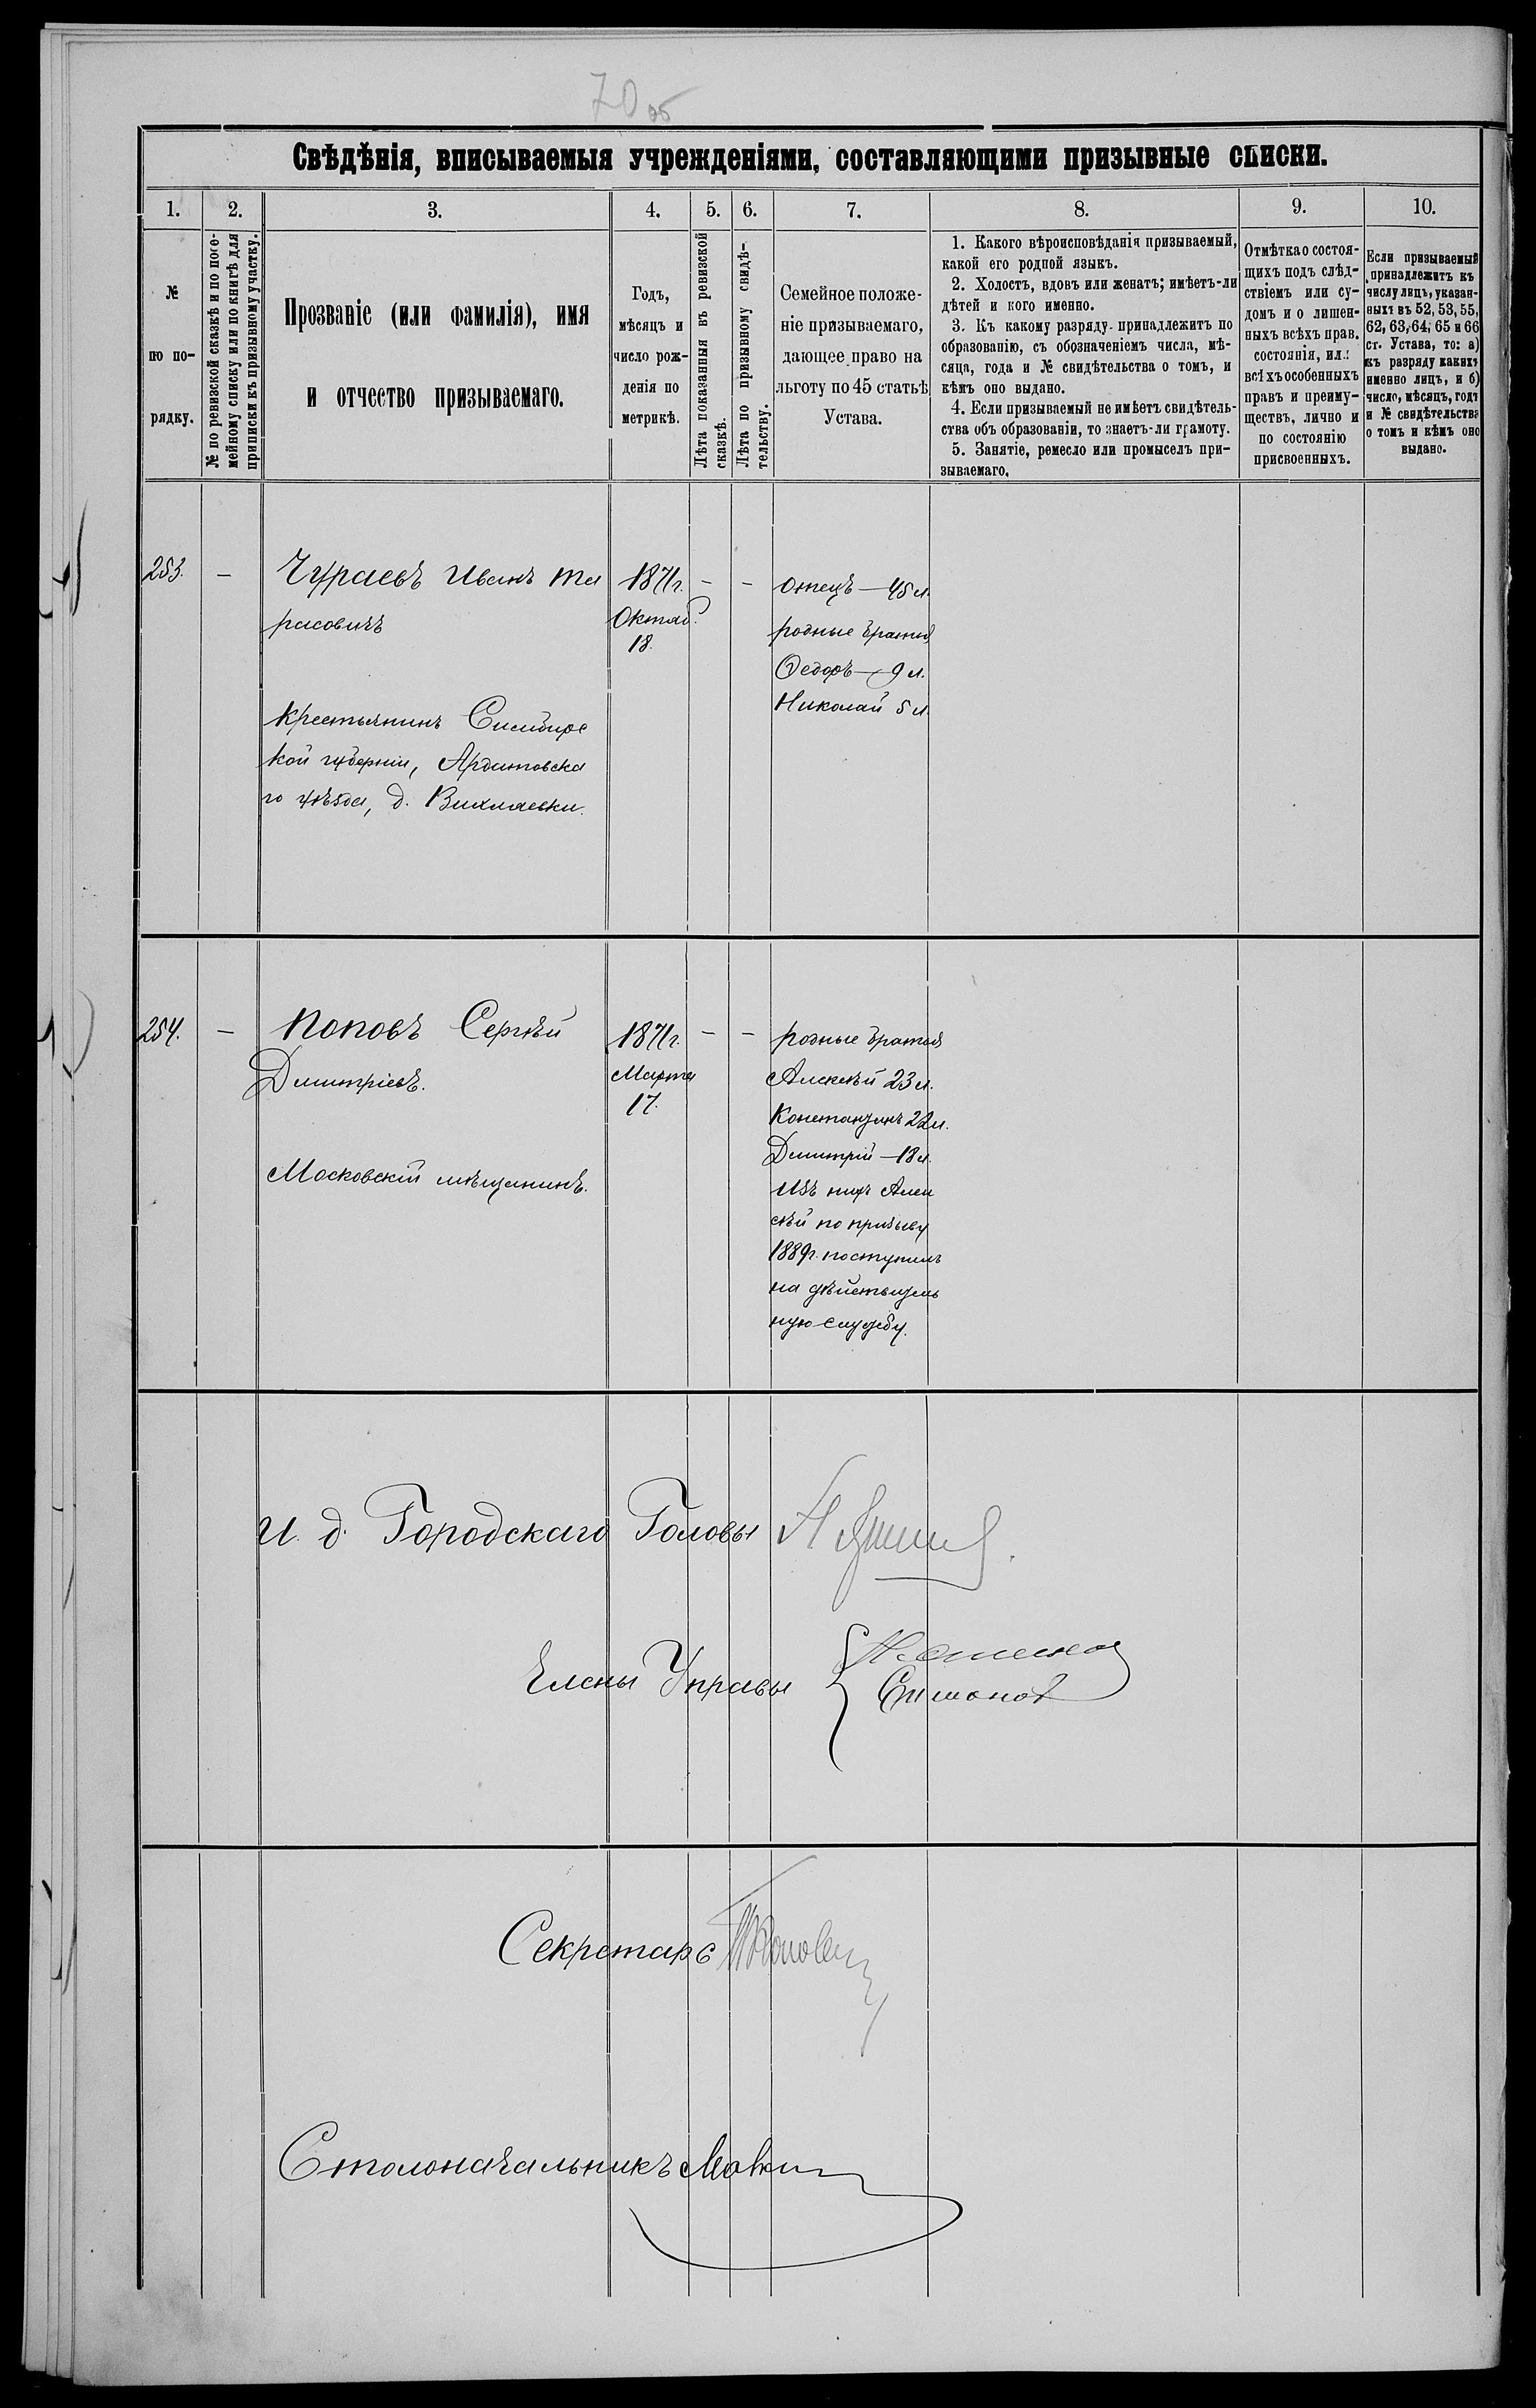 70 об
Свѣдѣнія, вписываемыя учрежденіями, составляющими призывные списки.
1. 2. 3. 4. 5. 6. 7. 8. 9. 10.
№
по по-
рядку.
№ по ревизской сказкѣ и по посе-
мейному списку или по книгѣ для
приписки къ призывному участку.
Прозваніе (или фамилія), имя
и отчество призываемаго.
Годъ,
мѣсяцъ и
число рож-
денія по
метрикѣ.
Лѣта показанныя въ ревизской
сказкѣ.
Лѣта по призывному свидѣ-
тельству.
Семейное положе-
ніе призываемаго,
дающее право на
льготу по 45 статьѣ
Устава.
1. Какого вѣроисповѣданія призываемый,
какой его родной языкъ.
2. Холостъ, вдовъ или женатъ; имѣетъ-ли
дѣтей и кого именно.
3. Къ какому разряду принадлежитъ по
образованію, съ обозначеніемъ числа, мѣ-
сяца, года и № свидѣтельства о томъ, и
кѣмъ оно выдано.
4. Если призываемый не имѣетъ свидѣтель-
ства объ образованіи, то знаетъ-ли грамоту.
5. Занятіе, ремесло или промыселъ при-
зываемаго.
Отмѣтка о состоя-
щихъ подъ слѣд-
ствіемъ или су-
домъ и о лишен-
ныхъ всѣхъ прав.
состоянія, или
всѣхъ особенныхъ
правъ и преиму-
ществъ, лично и
по состоянію
присвоенныхъ.
Если призываемый
принадлежитъ къ
числу лицъ, указан-
ныхъ въ 52, 53, 55,
62, 63, 64, 65 и 66
ст. Устава, то: а)
къ разряду какихъ
именно лицъ, и б)
число, мѣсяцъ, годъ
и № свидѣтельства
о томъ и кѣмъ оно
выдано.
253. — Чураевъ Иванъ Та
расовичъ
Крестьянинъ Симбирс
кой губерніи, Ардатовска
го уѣзда, д. Вихлаевки.
1871г.
Октяб.
18.
— —
отецъ — 45 л.
родные братья
Ѳедоръ — 9 л.
Николай 5 л.
254. — Поповъ Сергѣй
Дмитріевъ.
Московскій мѣщанинъ.
1871г.
Марта
17.
— —
родные братья
Алексѣй 23 л.
Константинъ 22 л.
Дмитрій — 18 л.
Изъ нихъ Алек
сѣй по призыву
1889г. поступилъ
на дѣйствитель
ную службу.
И. д. Городскаго Головы
Члены Управы
Симонов
Секретарь
Столоначальникъ